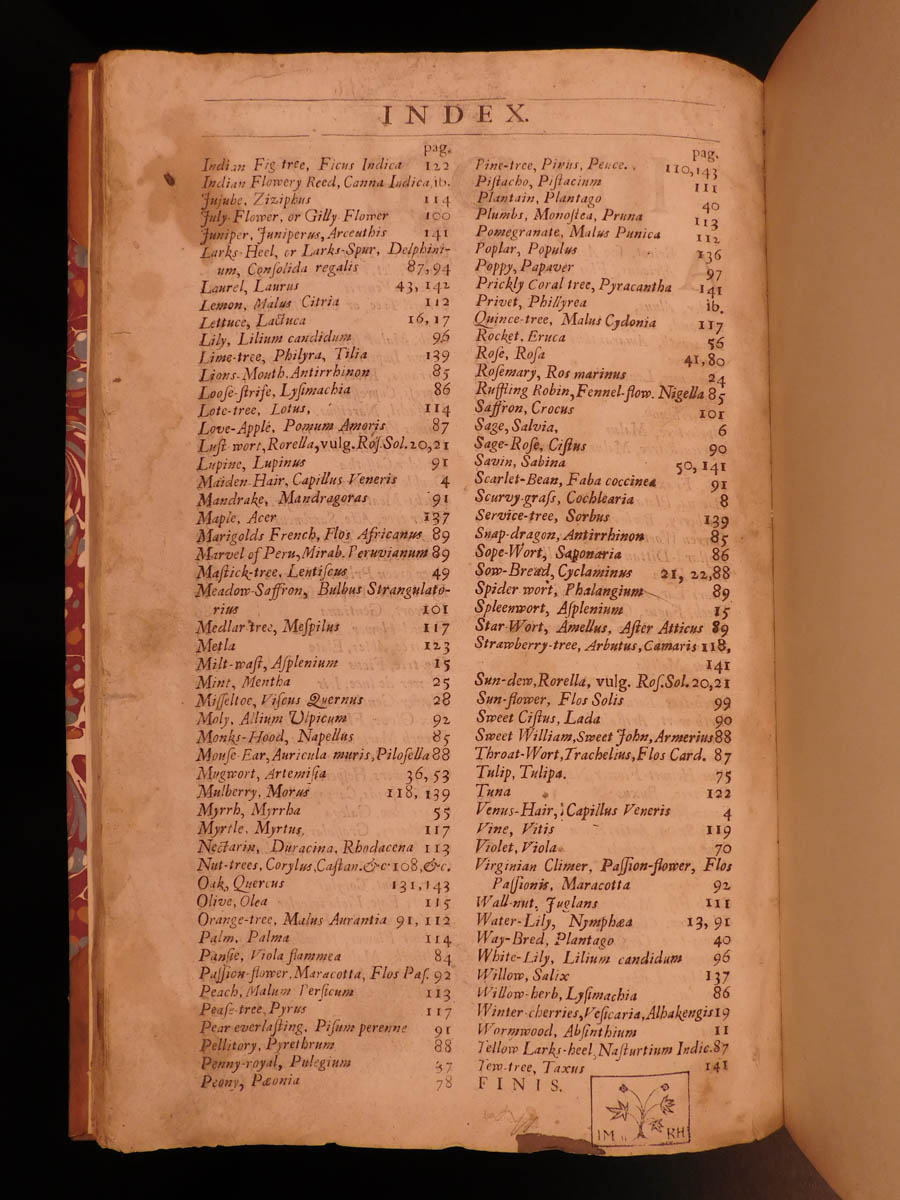 INDEX.
pag.
Indian Fig tree, Ficus Indica 122
Indian Flowery Reed, Canna Indica, ib.
Jujube, Ziziphus 114
July-Flower, or Gilly-Flower 100
Juniper, Juniperus, Arceuthis 141
Larks-Heel, or Larks-Spur, Delphini-
um, Conſolida regalis 87, 94
Laurel, Laurus 43, 142
Lemon, Malus Citria 112
Lettuce, Lactuca 16, 17
Lily, Lilium candidum 96
Lime-tree, Philyra, Tilia 139
Lions-Mouth, Antirrhinon 85
Looſe-ſtrife, Lyſimachia 86
Lote-tree, Lotus, 114
Love-Apple, Pomum Amoris 87
Luſt-wort, Rorella, vulg. Roſ.Sol. 20, 21
Lupine, Lupinus 91
Maiden-Hair, Capillus Veneris 4
Mandrake, Mandragoras 91
Maple, Acer 137
Marigolds French, Flos Africanus 89
Marvel of Peru, Mirab. Peruvianum 89
Maſtick-tree, Lentiſcus 49
Meadow-Saffron, Bulbus Strangulato-
rius 101
Medlar tree, Meſpilus 117
Metla 123
Milt-waſt, Aſplenium 15
Mint, Mentha 25
Miſſeltoe, Viſcus Quernus 28
Moly, Allium Ulpicum 92
Monks-Hood, Napellus 85
Mouſe-Ear, Auricula muris, Piloſella 88
Mugwort, Artemiſia 36, 53
Mulberry, Morus 118, 139
Myrrh, Myrrha 55
Myrtle, Myrtus, 117
Nectarin, Duracina, Rhodacena 113
Nut-trees, Corylus, Caſtan. &c. 108, &c.
Oak, Quercus 131, 143
Olive, Olea 115
Orange-tree, Malus Aurantia 91, 112
Palm, Palma 114
Panſie, Viola flammea 84
Paſſion-flower, Maracotta, Flos Paſ. 92
Peach, Malum Perſicum 113
Peaſe-tree, Pyrus 117
Pear everlaſting, Piſum perenne 91
Pellitory, Pyrethrum 88
Penny-royal, Pulegium 37
Peony, Pæonia 78
pag.
Pine-tree, Pinus, Peuce. 110, 143
Piſtacho, Piſtacium 111
Plantain, Plantago 40
Plumbs, Monoſtea, Pruna 113
Pomegranate, Malus Punica 112
Poplar, Populus 136
Poppy, Papaver 97
Prickly Coral tree, Pyracantha 141
Privet, Phillyrea ib.
Quince-tree, Malus Cydonia 117
Rocket, Eruca 56
Roſe, Roſa 41, 80
Roſemary, Ros marinus 24
Ruffling Robin, Fennel-flow. Nigella 85
Saffron, Crocus 101
Sage, Salvia, 6
Sage-Roſe, Ciſtus 90
Savin, Sabina 50, 141
Scarlet-Bean, Faba coccinea 91
Scurvy-graſs, Cochlearia 8
Service-tree, Sorbus 139
Snap-dragon, Antirrhinon 85
Sope-Wort, Saponaria 86
Sow-Bread, Cyclaminus 21, 22, 88
Spider wort, Phalangium 89
Spleenwort, Aſplenium 15
Star-Wort, Amellus, Aſter Atticus 89
Strawberry-tree, Arbutus, Camaris 118,
141
Sun-dew, Rorella, vulg. Roſ.Sol. 20, 21
Sun-flower, Flos Solis 99
Sweet Ciſtus, Lada 90
Sweet William, Sweet John, Armerius 88
Throat-Wort, Trachelius, Flos Card. 87
Tulip, Tulipa. 75
Tuna 122
Venus-Hair, Capillus Veneris 4
Vine, Vitis 119
Violet, Viola 70
Virginian Climer, Paſſion-flower, Flos
Paſſionis, Maracotta 92
Wall-nut, Juglans 111
Water-Lily, Nymphæa 13, 91
Way-Bred, Plantago 40
White-Lily, Lilium candidum 96
Willow, Salix 137
Willow-herb, Lyſimachia 86
Winter-cherries, Veſicaria, Alhakengis 19
Wormwood, Abſinthium 11
Yellow Larks-heel, Naſturtium Indic. 87
Yew-tree, Taxus 141
FINIS.
IM RH